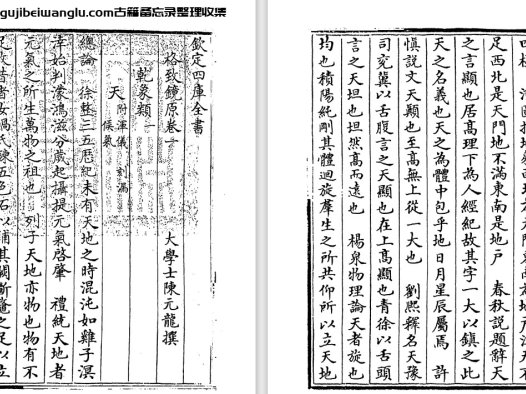 gujibeiwanglu.com古籍备忘录整理收集
欽定四庫全書
格致鏡原卷一
大學士陳元龍撰
乾象類一
天 附渾儀 刻漏 候氣
總論 徐整三五厯紀未有天地之時混沌如雞子溟
涬始判濛鴻滋分歲起攝提元氣啓肇 禮統天地者
元氣之所生萬物之祖也 列子天地亦物也物有不
足故昔者女媧氏鍊五色石以補其闕斷鼇之足以立
足西北是天門地不滿東南是地戶 春秋說題辭天
之言顯也居髙理下為人經紀故其字一大以鎮之此
天之名義也天之為體中包乎地日月星辰屬焉 許
慎說文天顛也至髙無上從一大也 劉熙釋名天豫
司兗冀以舌腹言之天顯也在上髙顯也青徐以舌頭
言之天坦也坦然髙而逺也 楊泉物理論天者旋也
均也積陽純剛其體迴旋羣生之所共仰所以立天地